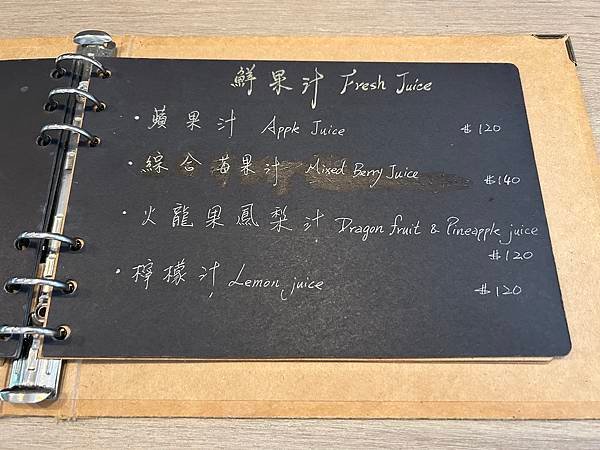 鮮果汁 Fresh Juice
・蘋果汁 Apple Juice $120
・綜合莓果汁 Mixed Berry Juice $140
・火龍果鳳梨汁 Dragon fruit & Pineapple juice
$120
・檸檬汁 Lemon juice $120